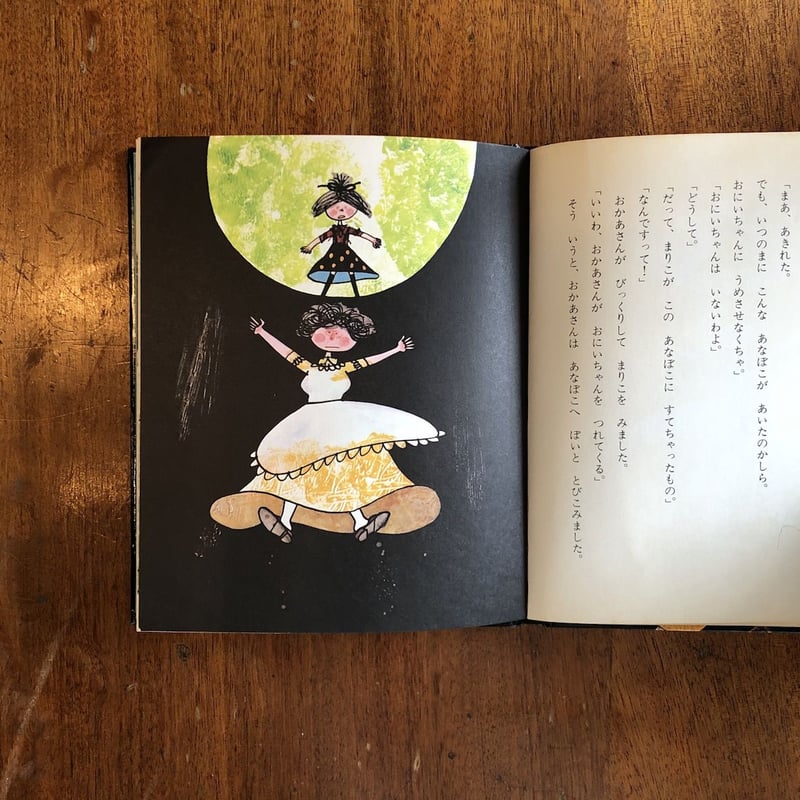 「まあ、あきれた。
でも、いつのまに こんな あなぼこが あいたのかしら。
おにいちゃんに うめさせなくちゃ。
「おにいちゃんは いないわよ」
「どうして。
「だって、まりこが この あなぼこに すてちゃったもの。
「なんですって！」
おかあさんが びっくりして まりこを みました。
「いいわ、おかあさんが おにいちゃんを つれてくる。
そう いうと、おかあさんは あなぼこへ ぽいと とびこみました。